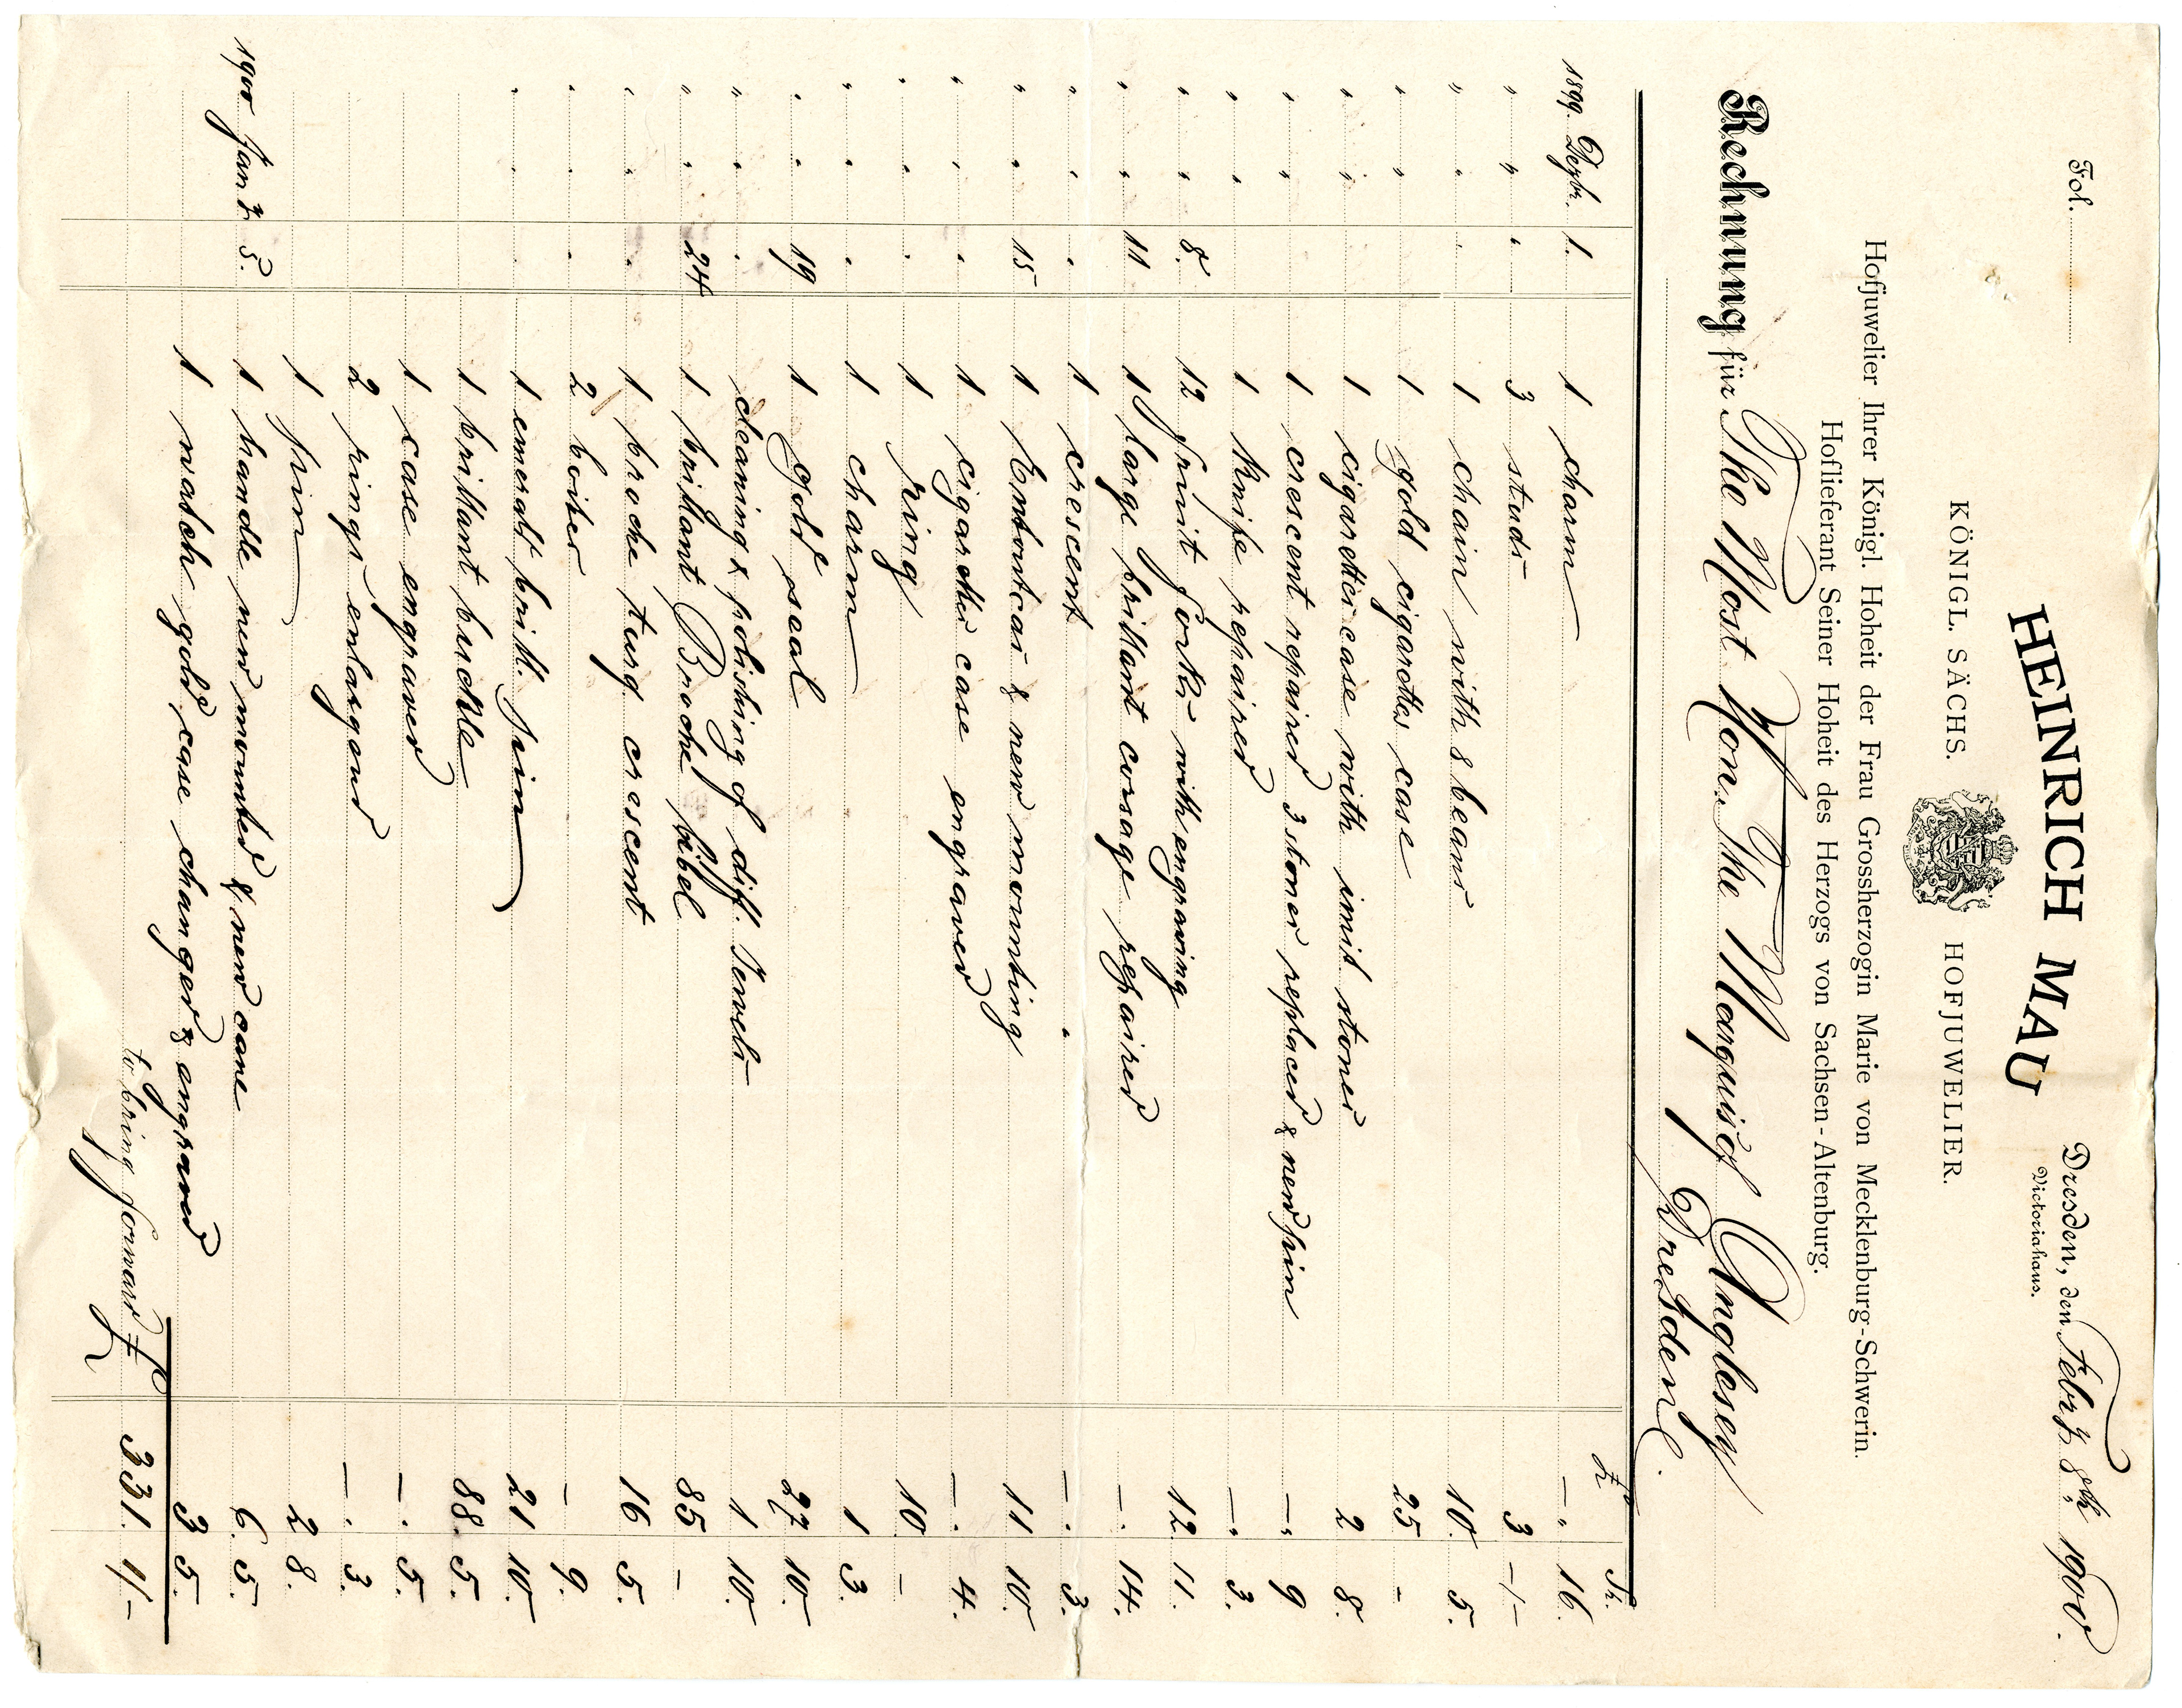 Fol.
Dresden, den Febry. 8th 1900.
Victoriahaus.
HEINRICH MAU
KÖNIGL. SÄCHS. HOFJUWELIER.
Hofjuwelier Ihrer Königl. Hoheit der Frau Grossherzogin Marie von Mecklenburg-Schwerin.
Hoflieferant Seiner Hoheit des Herzogs von Sachsen-Altenburg.
Rechnung für The Most Hon. The Marquis of Anglesey
Dresden.
£ Sh.
1899. Dezbr. 1. 1 charm —„ 16.
" " " 3 studs 3 -/-
" " " 1 chain with 8 bears 10. 5.
" " " 1 gold cigarettes case 25 -
" " 1 cigarettes case with imit. stones 2 8.
" " 1 crescent repaired 3 stones replaced & new pin —„ 9
" " 1 Knife repaired —„ 3.
" " 8. 12 fruit forks with engraving 12. 11.
" " 11 1 large brillant corsage repaired —. 14.
" " " 1 crescent —. 3.
" " 15 1 Entoutcas & new mounting 11 10.
" " " 1 cigarettes case engraved —. 4.
" " " 1 ring 10 —
" " " 1 charm 1 3.
" " 19 1 gold seal 27 10.
" " " cleaning & polishing of diff. Jewels 1 10.
" " 24 1 brillant Broche Säbel 85 —
" " " 1 broche turq. crescent 16 5.
" " " 2 boites — 9.
" " 1 emerald brill. pin 21 10.
1 brillant buckle 88. 5.
1 case engraved —. 5.
2 rings enlarged —. 3.
1 pin 2 8.
1900 Jan. 3. 1 handle new mounted & new cane 6. 5.
1 watch gold case changed & engraved 3 5.
to bring forward £ 331. 1/-